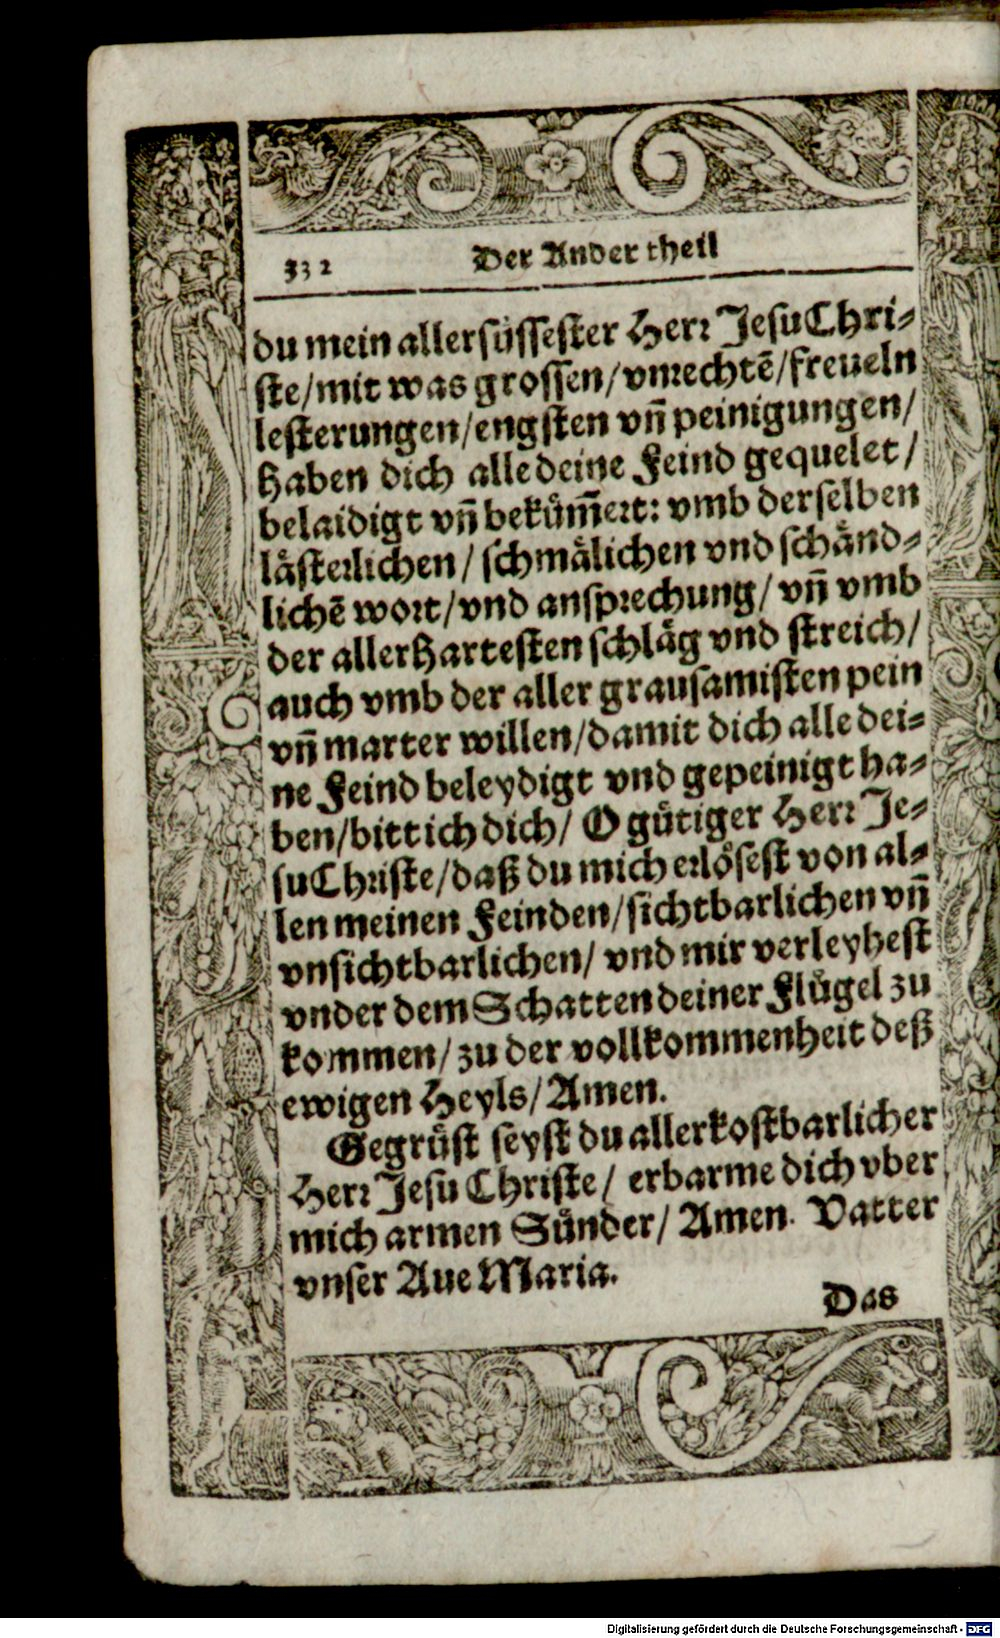 332 Der Ander theil
du mein allersüssester Herr Jesu Chri⸗
ste/mit was grossen/vnrechtẽ/freueln
lesterungen/engsten vñ peinigungen/
haben dich alle deine Feind gequelet/
belaidigt vñ bekuͤm̃ert: vmb derselben
laͤsterlichen/ schmaͤlichen vnd schaͤnd⸗
lichẽ wort/vnd ansprechung/ vñ vmb
der allerhartesten schlaͤg vnd streich/
auch vmb der aller grausamisten pein
vñ marter willen/damit dich alle dei⸗
ne Feind beleydigt vnd gepeinigt ha⸗
ben/bitt ich dich/ O guͤtiger Herr Je⸗
su Christe/daß du mich erloͤsest von al⸗
len meinen Feinden/sichtbarlichen vñ
vnsichtbarlichen/ vnd mir verleyhest
vnder dem Schatten deiner Fluͤgel zu
kommen/ zu der vollkommenheit deß
ewigen Heyls/ Amen.
Gegruͤst seyst du allerkostbarlicher
Herr Jesu Christe/ erbarme dich vber
mich armen Suͤnder/ Amen. Vatter
vnser Aue Maria.
Das
Digitalisierung gefördert durch die Deutsche Forschungsgemeinschaft - DFG